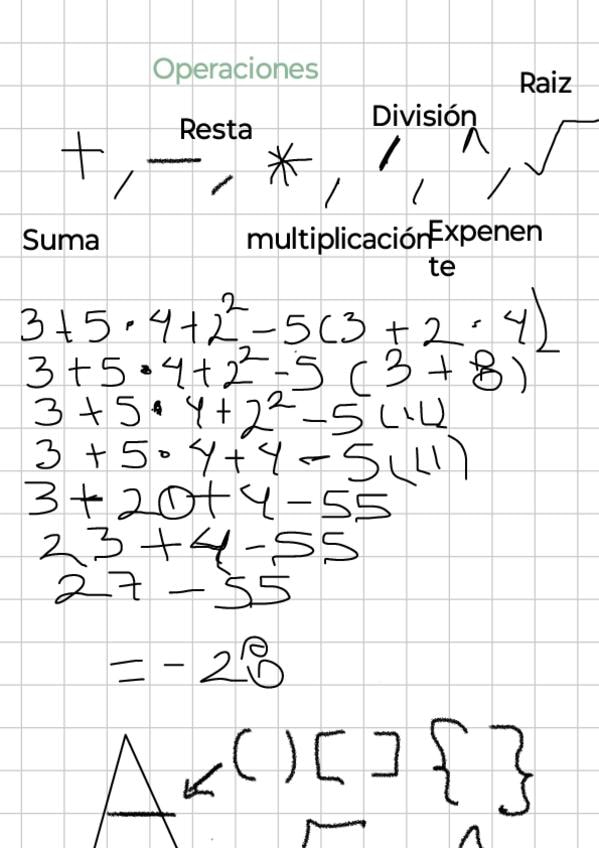 Operaciones
Raiz
Resta
División
+ , — , * , / , ^ , √
Suma
multiplicación
Expenen
te
3+5·4+2²-5(3+2·4)
3+5·4+2²-5(3+8)
3+5·4+2²-5(11)
3+5·4+4-5(11)
3+20+4-55
23+4-55
27-55
=-28
( ) [ ] { }